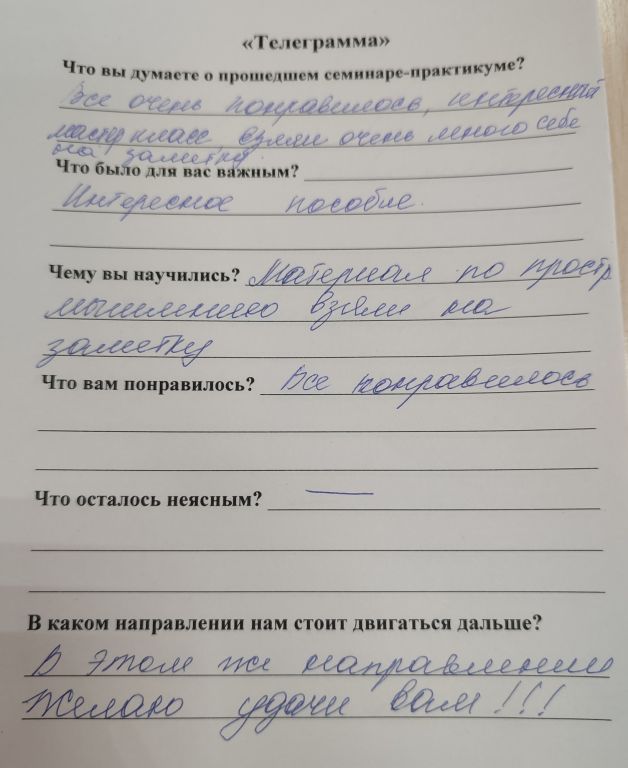 «Телеграмма»
Что вы думаете о прошедшем семинаре-практикуме?
Все очень понравилось, интересный
мастер класс, взяли очень много себе
на заметку.
Что было для вас важным?
Интересное пособие.
Чему вы научились? Материал по простр
мышлению взяли на
заметку
Что вам понравилось? Все понравилось
Что осталось неясным? —
В каком направлении нам стоит двигаться дальше?
В этом же направлении
Желаю удачи вам!!!